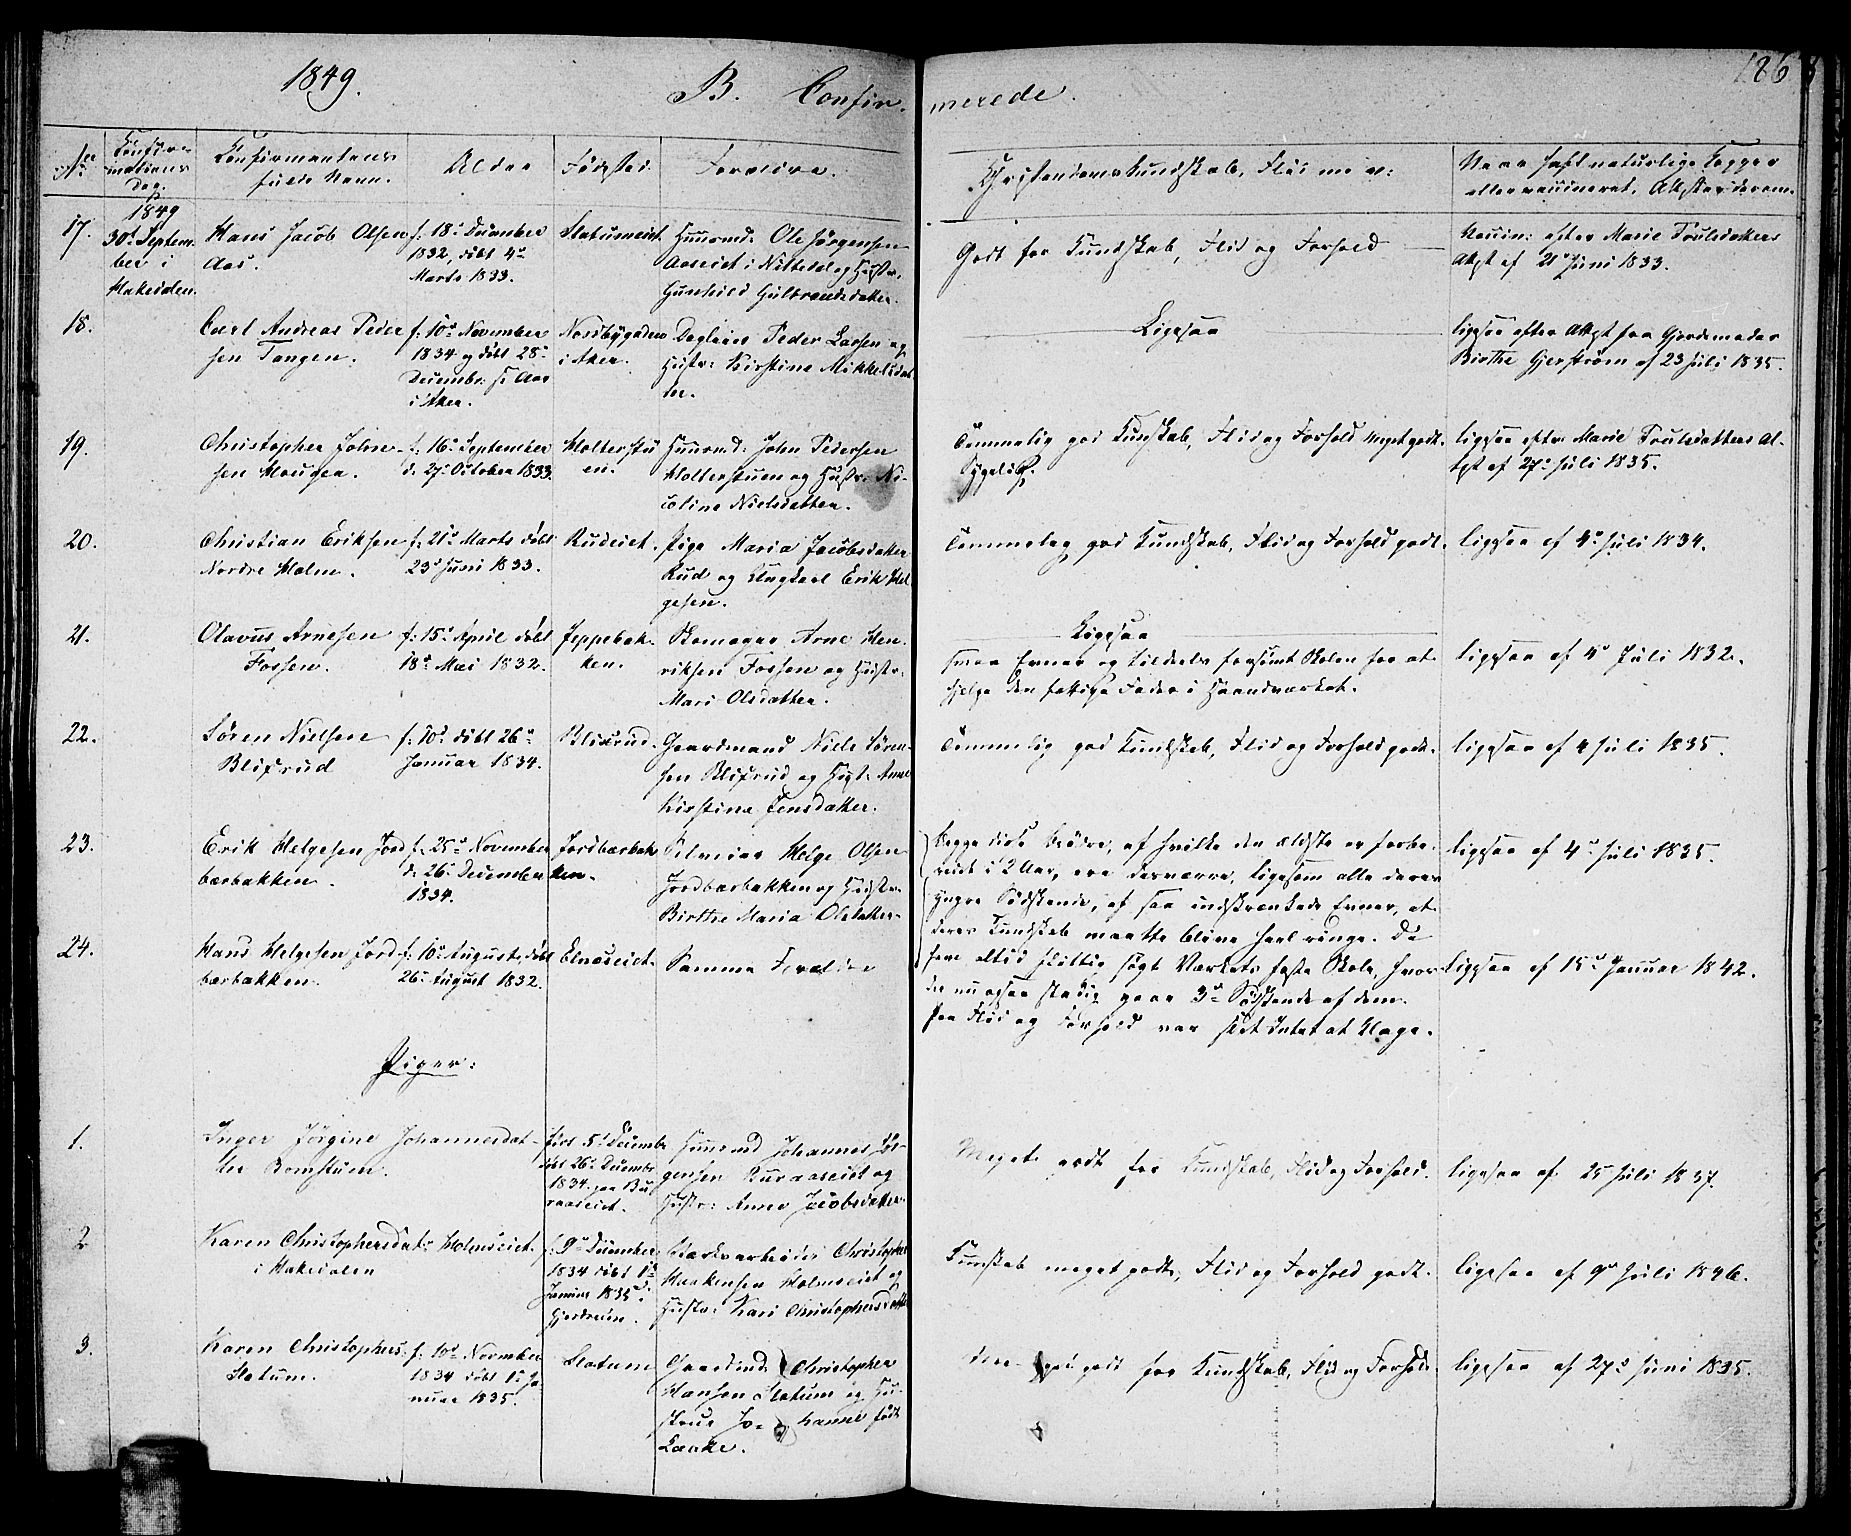 1849.
B. Confir-
merede.
186
No
Confir-
mations
Dag.
Confirmantens
fulde Navn.
Alder
Födsted
Forældre.
Christendomskundskab, Flid m. v.
Naar haft naturlige Kopper
eller vaccineret, Attester derom.
17.
1849
30te Septem-
ber i
Hakedalen.
Hans Jacob Olsen
Aas.
f. 18de December
1832, döbt 4de
Marts 1833.
Slatumeiet.
Huusmd. Ole Jörgensen
Aaseiet i Nittedal og Hustr.
Gunhild Gulbrandsdatter.
Godt for Kundskab, Flid og Forhold
Vaccin: efter Marie Troulsdatters
Attst af 21de Juni 1833.
18.
Carl Andreas Peder
sen Tangen.
f. 10de November
1834 og döbt 28de
Decembr. s. Aar
i Aker.
Nordbygaden
i Aker.
Dagleier Peder Larsen og
Hustr: Kirstine Mikkelsdat-
ter.
Ligesaa
ligesaa efter Attst fra Gjordemoder
Birthe Gjerström af 23 Juli 1835.
19.
Christopher John-
sen Haugen.
f. 16de September
d. 27de October 1833.
Holterstu
en.
Huusmd: John Pedersen
Holterstuen og Hustr: Ni-
coline Nielsdatter.
Temmelig god Kundskab, Flid og Forhold meget godt.
Sygelig.
ligesaa efter Marie Troulsdatters At-
tst af 27de Juli 1835.
20.
Christian Eriksen
Nordre Holm.
f. 21de Marts döbt
23de Juni 1833.
Rudeiet.
Pige Maria Jacobsdatter
Rud og Ungkarl Erik Hel
gesen.
Temmelig god Kundskab, Flid og Forhold godt.
ligesaa af 4de Juli 1834.
21.
Olavus Arnesen
Fossen.
f. 15de April döbt
18de Mai 1832.
Jeppebak-
ken.
Skomager Arne Hen
riksen Fossen og Hustr:
Mari Olsdatter.
Ligesaa
smaa Evner og tildeels forsömt Skolen for at
hjelpe den fattige Fader i Haandværket.
ligesaa af 4de Juli 1832.
22.
Sören Nielsen
Blixrud
f. 10de döbt 26de
Januar 1834.
Blixrud.
Gaardmand Niels Sören-
sen Blixrud og Hust: Anne
Kirstine Jensdatter.
Temmelig god Kundskab, Flid og Forhold godt.
ligesaa af 4 Juli 1835.
23.
Erik Helgesen Jord
bærbakken.
f. 25de November
d. 26de December
1834.
Jordbærbak
ken.
Helge Olsen
Jordbærbakken og Hustr:
Birthe Maria Olsdatter
Begge disse Brödre, af hvilke den ældste er forbe-
redt i 2 Aar, ere desværre, ligesom alle deres
yngre Södskende, af saa indskrænkede Evner, at
deres Kundskab maatte blive heel ringe. De
have altid flittig sögt Værkets faste Skole, hvor
der nu ogsaa stadig gaar 3de Södskende af dem.
Paa Flid og Forhold var slet Intet at klage.
ligesaa af 4de Juli 1835.
24.
Hans Helgesen Jord
bærbakken.
f. 10de August, döbt
26de August 1832.
Elnæseiet.
Samme Forældre
ligesaa af 15de Januar 1842.
Piger:
1.
Inger Jörgine Johannesdat-
ter Bomstuen.
född 5te Decembr
döbt 26de Decembr
1834 paa Bu
raaseiet.
Huusmd Johannes Jör-
gensen Buraaseiet og
Hustr: Anne Jacobsdatter.
Meget godt for Kundskab, Flid og Forhold.
ligesaa af 25 Juli 1837.
2
Karen Christophersdatr Holmseiet
i Hakedalen
f. 9de December
1834 döbt 1ste
Januar 1835 i
Gjerdrum.
Værksarbeider Christopher
Haakensen Holmseiet og
Hustr: Kari Christophersdatter
Kundskab meget godt, Flid og Forhold godt.
ligesaa af 9de Juli 1846.
3.
Karen Christophers.
Slatum.
f. 10de November
1834 döbt 1ste Ja-
nuar 1835.
Slatum
Gaardmd. Christopher
Hansen Slatum og Hu-
strue Jo- hanne födt
Laake.
Meget godt for Kundskab, Flid og Forhold.
ligesaa af 27de Juni 1835.